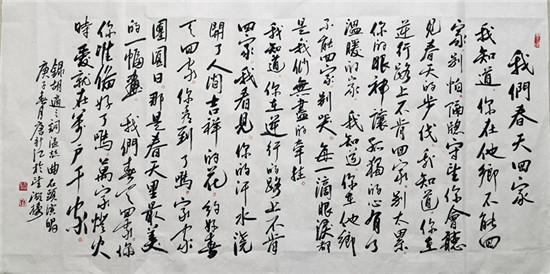 我們春天回家
我知道你在他鄉不能回
家別怕隔離守望你會聽
見春天的步伐我知道你在
逆行路上不肯回家別太累
你的眼神讓孤獨的心有了
溫暖的家我知道你在他鄉
不能回家别哭每一滴眼淚都
是我們無盡的牽挂
我知道你在逆行的路上不肯
回家我看見你的汗水澆
開了人间吉祥的花約好春
天回家你看到了嗎家家
團圓日那是春天里最美
的幅畫我們春天回家你
你準備好了嗎萬家燈火
時愛就在萬户千家
錄胡適之詞曲石頭演唱
庚子春月唐江於望湖樓